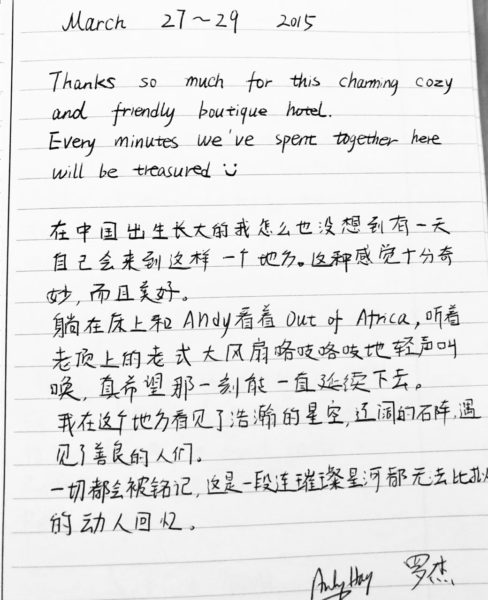 March 27~29 2015
Thanks so much for this charming cozy
and friendly boutique hotel.
Every minutes we've spent together here
will be treasured
在中国出生长大的我怎么也没想到有一天
自己会来到这样一个地方。这种感觉十分奇
妙,而且美好。
躺在床上和Andy看着Out of Africa,听着
老顶上的老式大风扇咯吱咯吱地轻声叫
唤,真希望那一刻能一直延续下去。
我在这个地方看见了浩瀚的星空,辽阔的石阵,遇
见了善良的人们。
一切都会被铭记,这是一段连璀璨星河都无法比拟
的动人回忆。
罗杰